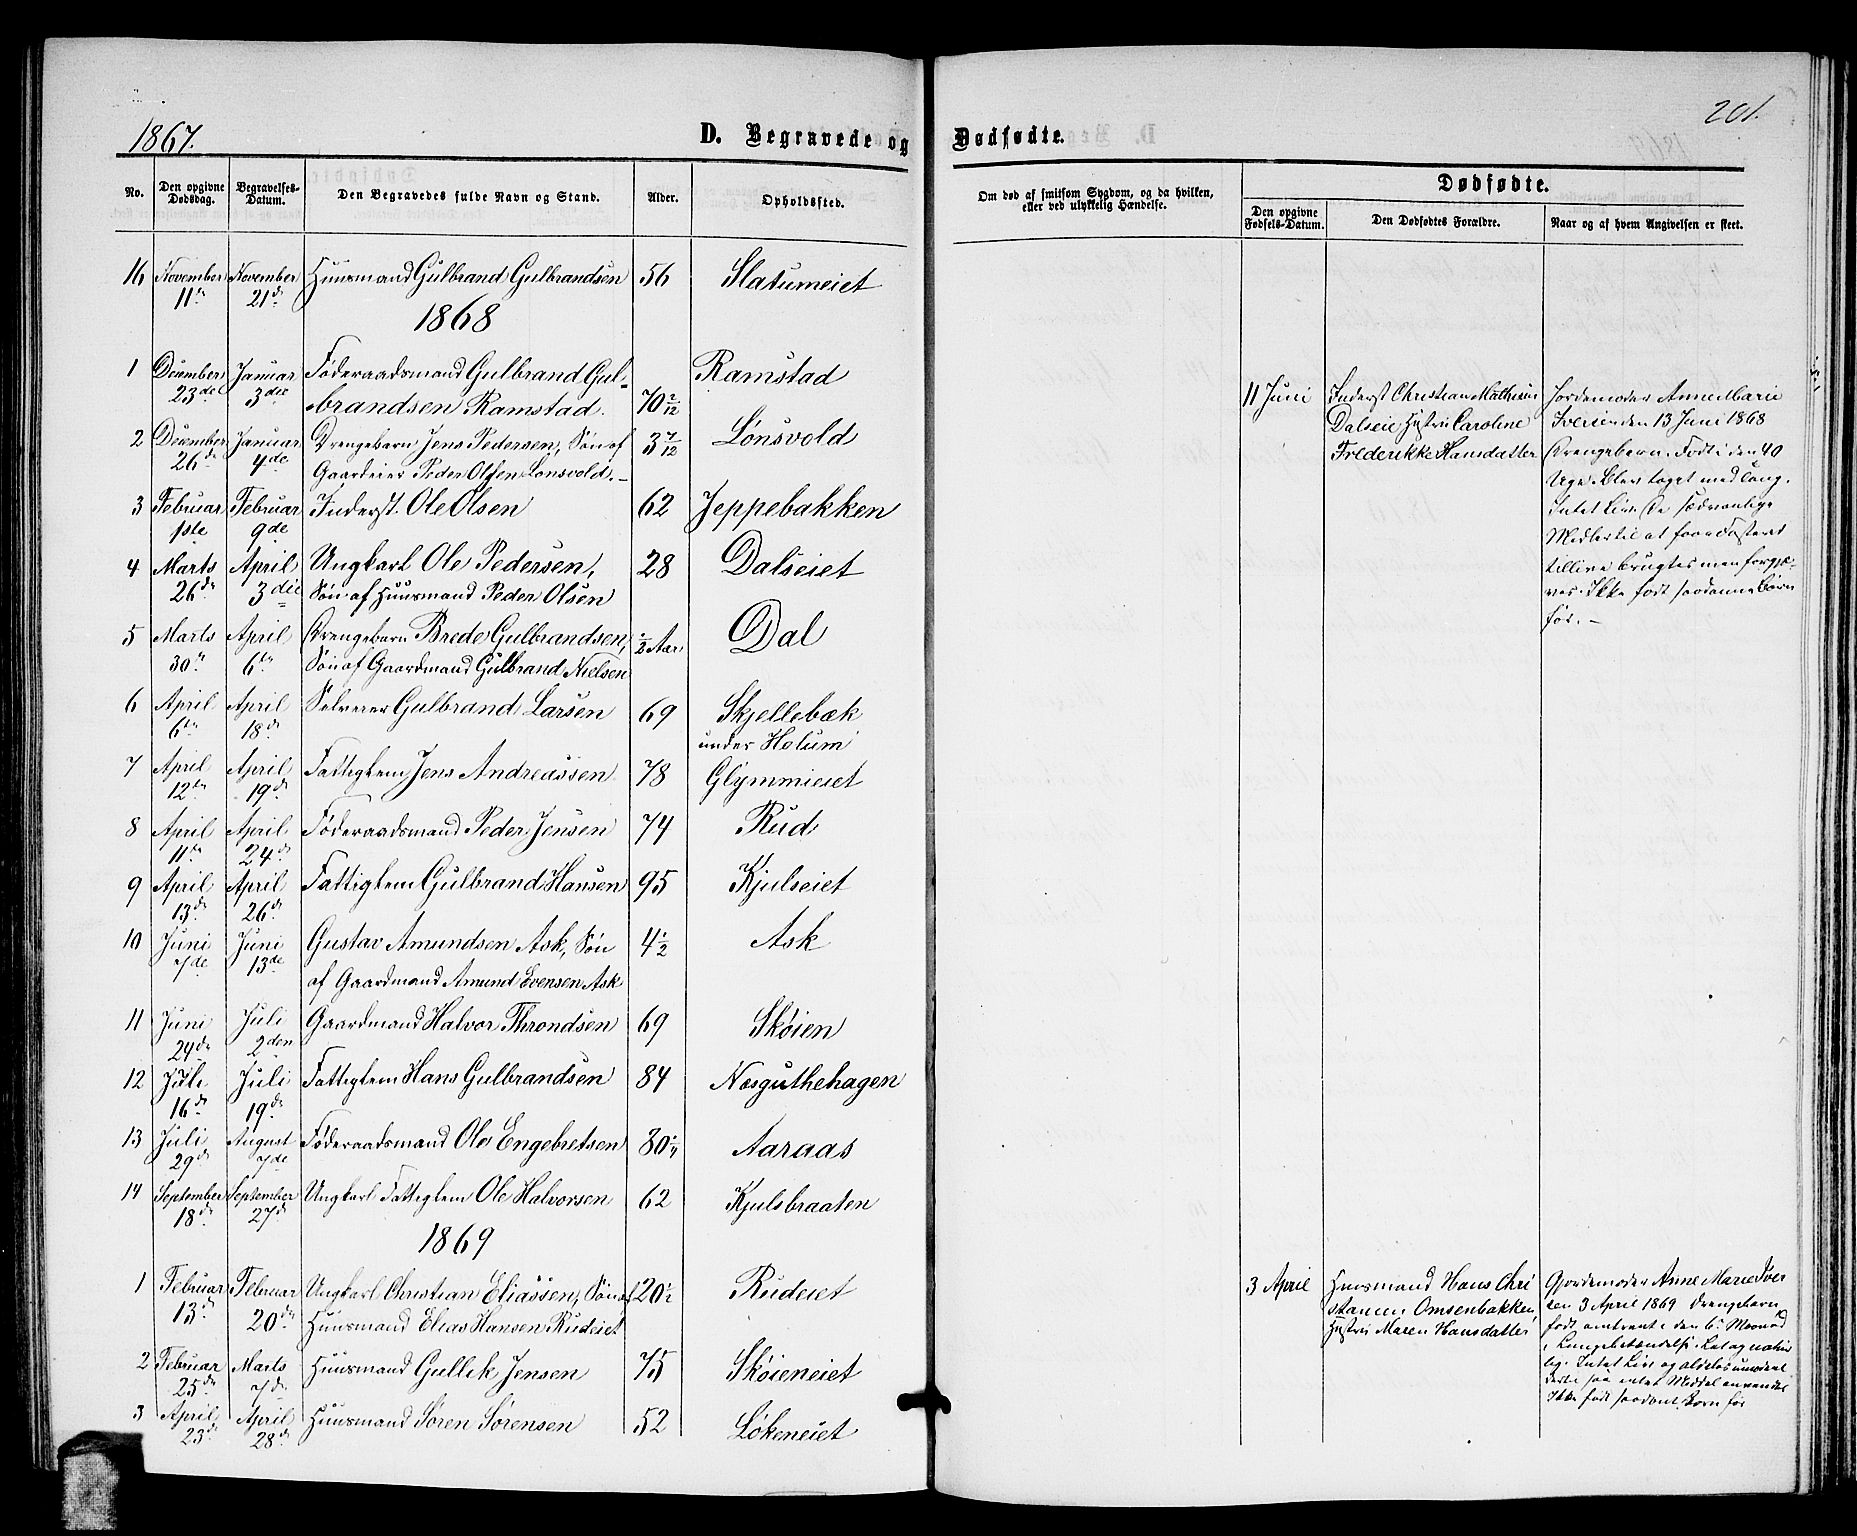 1867.
D. Begravede og
Dødfødte.
201.
No.
Den opgivne Dødsdag.
Begravelses-Datum.
Den Begravedes fulde Navn og Stand.
Alder.
Opholdssted.
Om død af smitsom Sygdom, og da hvilken, eller ved ulykkelig Hændelse.
Dødfødte.
Den opgivne Fødsels-Datum.
Den Dødfødtes Forældre.
Naar og af hvem Angivelsen er skeet.
16 November November Huusmand Gulbrand Gulbrandsen 56 Slatumeiet
11te 21de
1868
1 December Januar Føderaadsmand Gulbrand Gul- Ramstad
23de 3die brandsen Ramstad. 70 2/12
2 December Januar Drengebarn Jens Pedersen, Søn af 3 7/12 Lønsvold
26de 4de Gaardeier Peder Olsen Lønsvold.
3 Februar Februar Inderst Ole Olsen 62 Jeppebakken
1ste 9de
4 Marts April Ungkarl Ole Pedersen, 28 Dalseiet
26de 3die Søn af Huusmand Peder Olsen
5 Marts April Drengebarn Brede Gulbrandsen, 1/2 Aar Dal
30te 6te Søn af Gaardmand Gulbrand Nielsen
6 April April Selveier Gulbrand Larsen 69 Skjellebæk
6te 18de under Holum
7 April April Fattiglem Jens Andreassen 78 Glymmieiet
12te 19de
8 April April Føderaadsmand Peder Jensen 74 Rud
11te 24de
9 April April Fattiglem Gulbrand Hansen 95 Kjulseiet
13de 26de
10 Juni Juni Gustav Amundsen Ask, Søn 4 1/2 Ask
7de 13de af Gaardmand Amund Evensen Ask
11 Juni Juli Gaardmand Halvor Throndsen 69 Skøien
24de 2den
12 Juli Juli Fattiglem Hans Gulbrandsen 84 Næsguthehagen
16de 19de
13 Juli August Føderaadsmand Ole Engebretsen 80 1/4 Aaraas
29de 7de
14 September September Ungkarl Fattiglem Ole Halvorsen 62 Kjulsbraaten
18de 27de
1869
1 Februar Februar Ungkarl Christian Eliassen, Søn af 20 1/2 Rudeiet
13de 20de Huusmand Elias Hansen Rudeiet
2 Februar Marts Huusmand Gullik Jensen 75 Skøieneiet
25de 7de
3 April April Huusmand Søren Sørensen 52 Løkeneiet
23de 28de
11 Juni
Inderst Christian Mathisen
Dalseie Hustru Caroline
Frederikke Hansdatter
Jordemoder Anne Marie
Iversen den 13 Juni 1868
Drengebarn. Født i den 40
Uge. Blev taget med Tang.
Intet Liv. De sædvanlige
Midler til at faae Fosteret
tillive brugtes men forgjæ-
ves. Ikke født saadanne Børn
før. -
3 April
Huusmand Hans Chri
stansen Omsenbakken
Hustru Maren Hansdatter
Gjordemoder Anne Marie Iver
sen 3 April 1869 Drengebarn
født omtrent i den 6te Maaned
Intet Liv og aldeles
saa intet Middel anvendt
Ikke født saadant Barn før